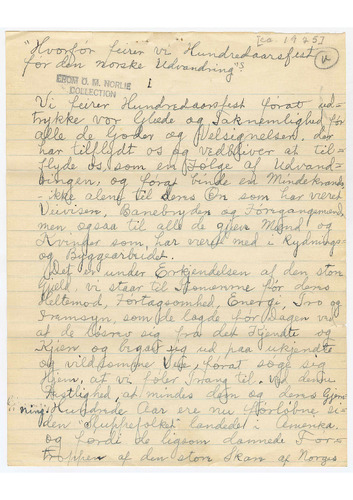 [ca. 1925]
"Hvorfor feirer vi "Hundredaarsfest
for den norske Udvandring"?
FROM O. M. NORLIE
COLLECTION
I
Vi feirer Hundredaarsfest forat ud-
trykke vor Glæde og Taknemlighed for
alle de Goder og Velsignelser, der
har tilflydt os og vedbliver at til-
flyde os, som en Følge af Udvand-
ringen, og forat binde en Mindekrands
- ikke alene til dens Ære som har været
Veivisere, Banebrydere og Foregangsmænd
men ogsaa til alle de gjæve Mænd og
Kvinder som har været med i Rydnings-
og Byggearbeidet.
Det er under Erkjendelsen af den store
Gjeld, vi staar til Stormænd for deres
Heltemod, Foretagsomhed, Energi, Tro og
Fremsyn, som de lagde for Dagen ved
at de løsrev sig fra det Kjendte og
Kjære og begav sig ud paa ukjendte
og vildsomme Veie, forat søge sig
Hjem, at vi føler Trang til, ved denne
Festlighed, at mindes dem og deres Gjer-
ning. Hundrede Aar er nu forløbne si-
den "Sluppefolket" landede i Amerika
og fordi de ligsom dannede For-
troppen af den store Skare af Norges